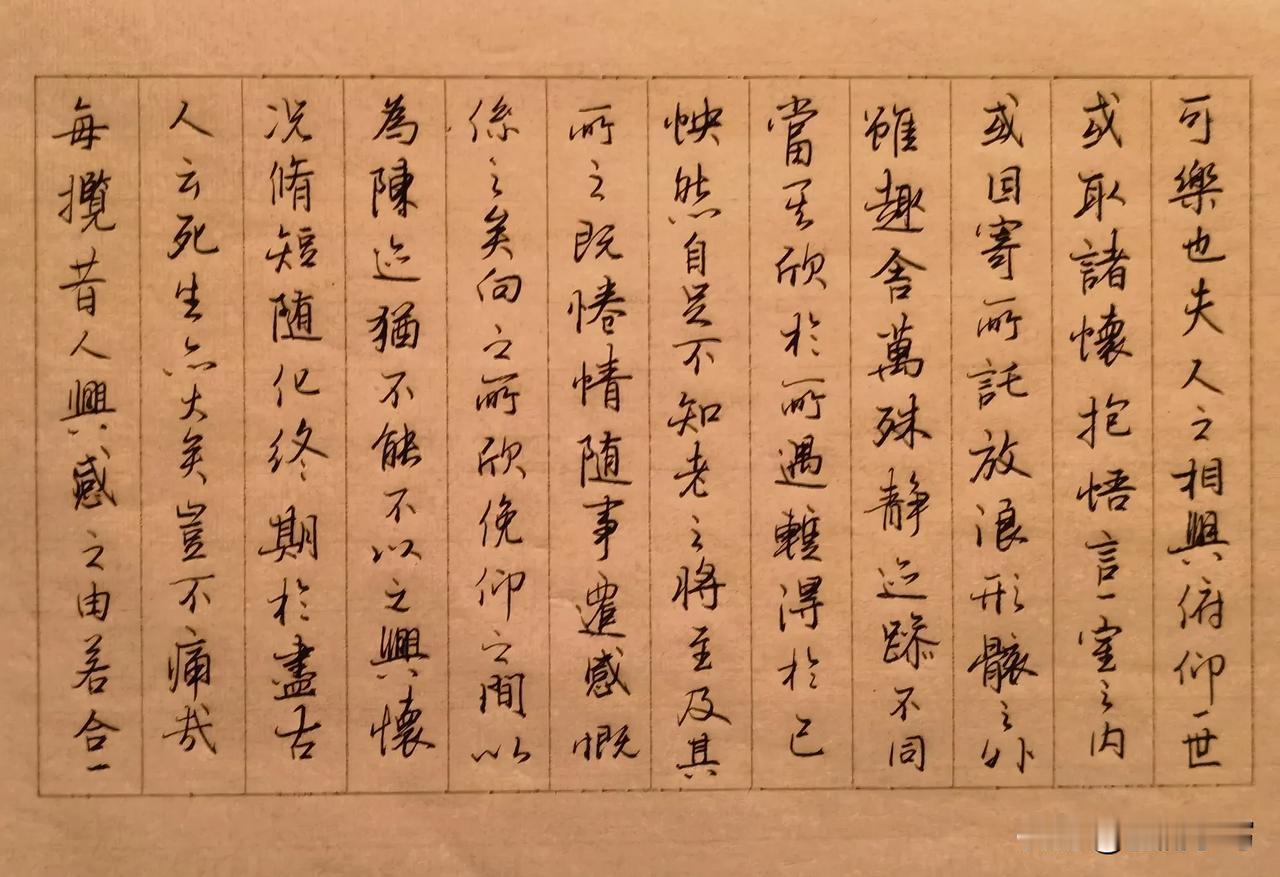 可樂也夫人之相與俯仰一世
或取諸懷抱悟言一室之內
或因寄所託放浪形骸之外
雖趣舍萬殊靜迹躁不同
當其欣於所遇蹔得於己
怏然自足不知老之將至及其
所之既惓情隨事遷感慨
係之矣向之所欣俛仰之間以
為陳迹猶不能不以之興懷
况脩短随化終期於盡古
人云死生亦大矣豈不痛哉
每攬昔人興感之由若合一